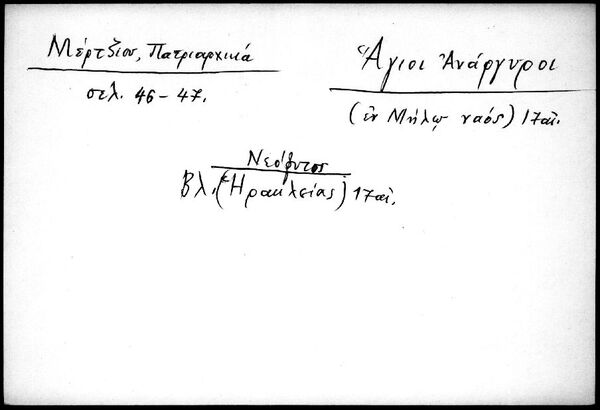 Μέρτζιου, Πατριαρχικά
σελ. 46-47.
Ἅγιοι Ἀνάργυροι
(ἐν Μήλῳ ναός) 17αἰ.
Νεόφυτος
Βλ. (Ἡρακλείας) 17αἰ.